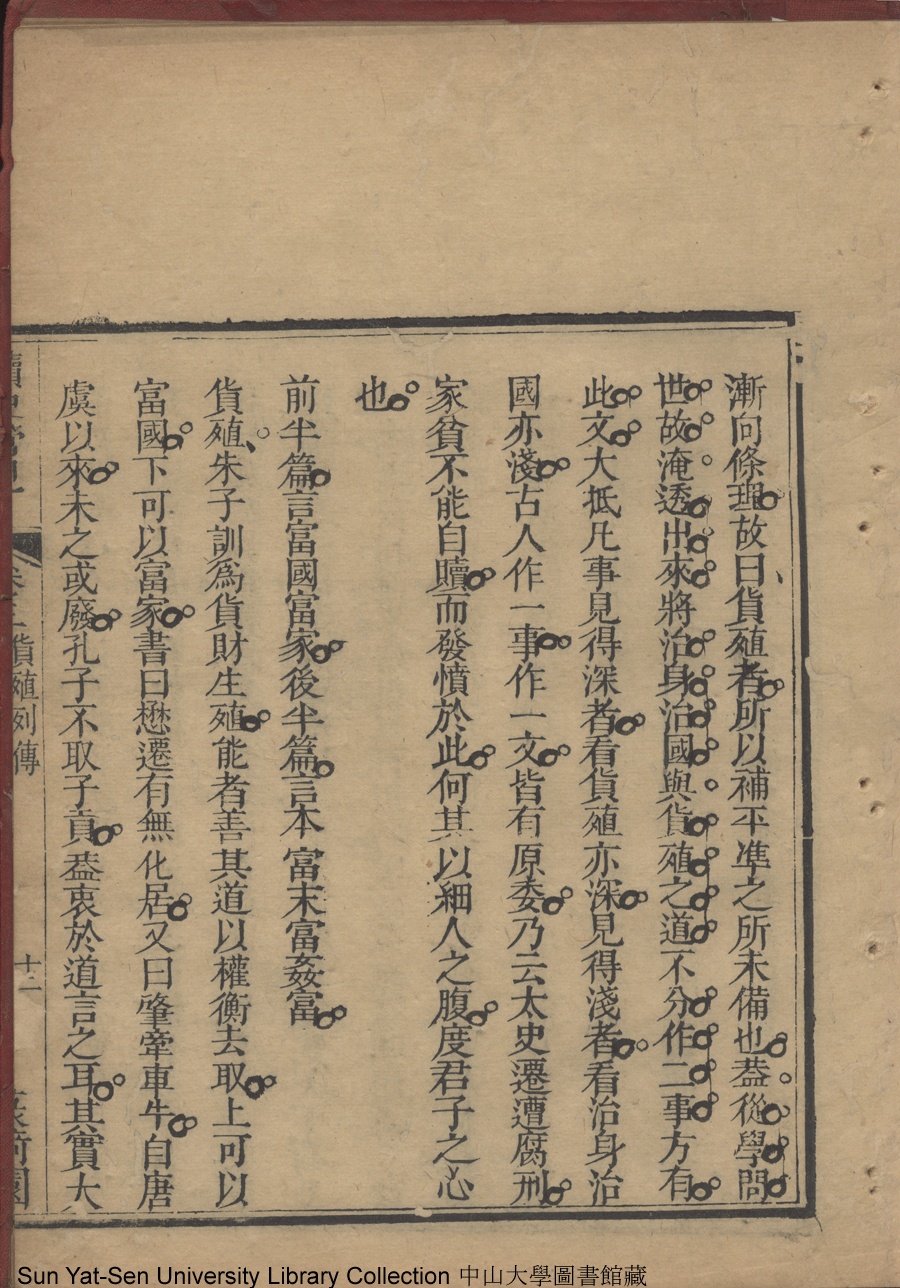 漸向條理故曰貨殖者所以補平準之所未備也葢從學問
世故淹透出來將治身治國與貨殖之道不分作二事方有
此文大抵凡事見得深者看貨殖亦深見得淺者看治身治
國亦淺古人作一事作一文皆有原委乃云太史遷遭腐刑
家貧不能自贖而發憤於此何其以細人之腹度君子之心
也
前半篇言富國富家後半篇言本富末富姦富
貨殖朱子訓爲貨財生殖能者善其道以權衡去取上可以
富國下可以富家書曰懋遷有無化居又曰肇牽車牛自唐
虞以來未之或廢孔子不取子貢葢衷於道言之耳其實大
貨殖列傳
十二
Sun Yat-Sen University Library Collection 中山大學圖書館藏